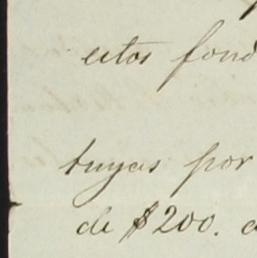 estos fond
tuyas por
de $200. a